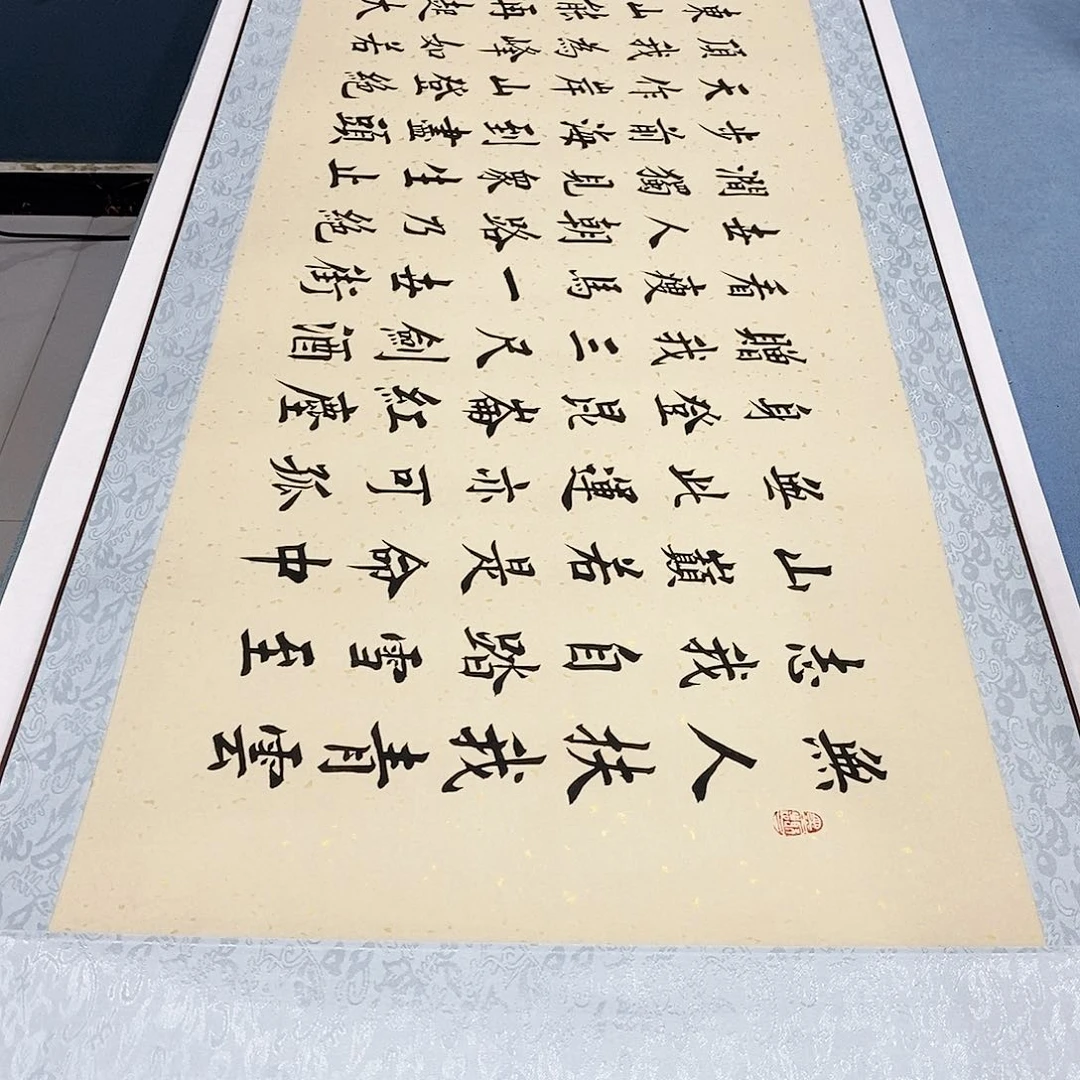 無人扶我青雲
志我自踏雪至
山巔若是命中
無此運亦可孤
身登昆崙紅塵
贈我三尺劍酒
看瘦馬一世
世人朝路乃絕
澗獨見眾生止
步前海到盡頭
天作岸山登絕
頂我為峰如若
東山能再起大